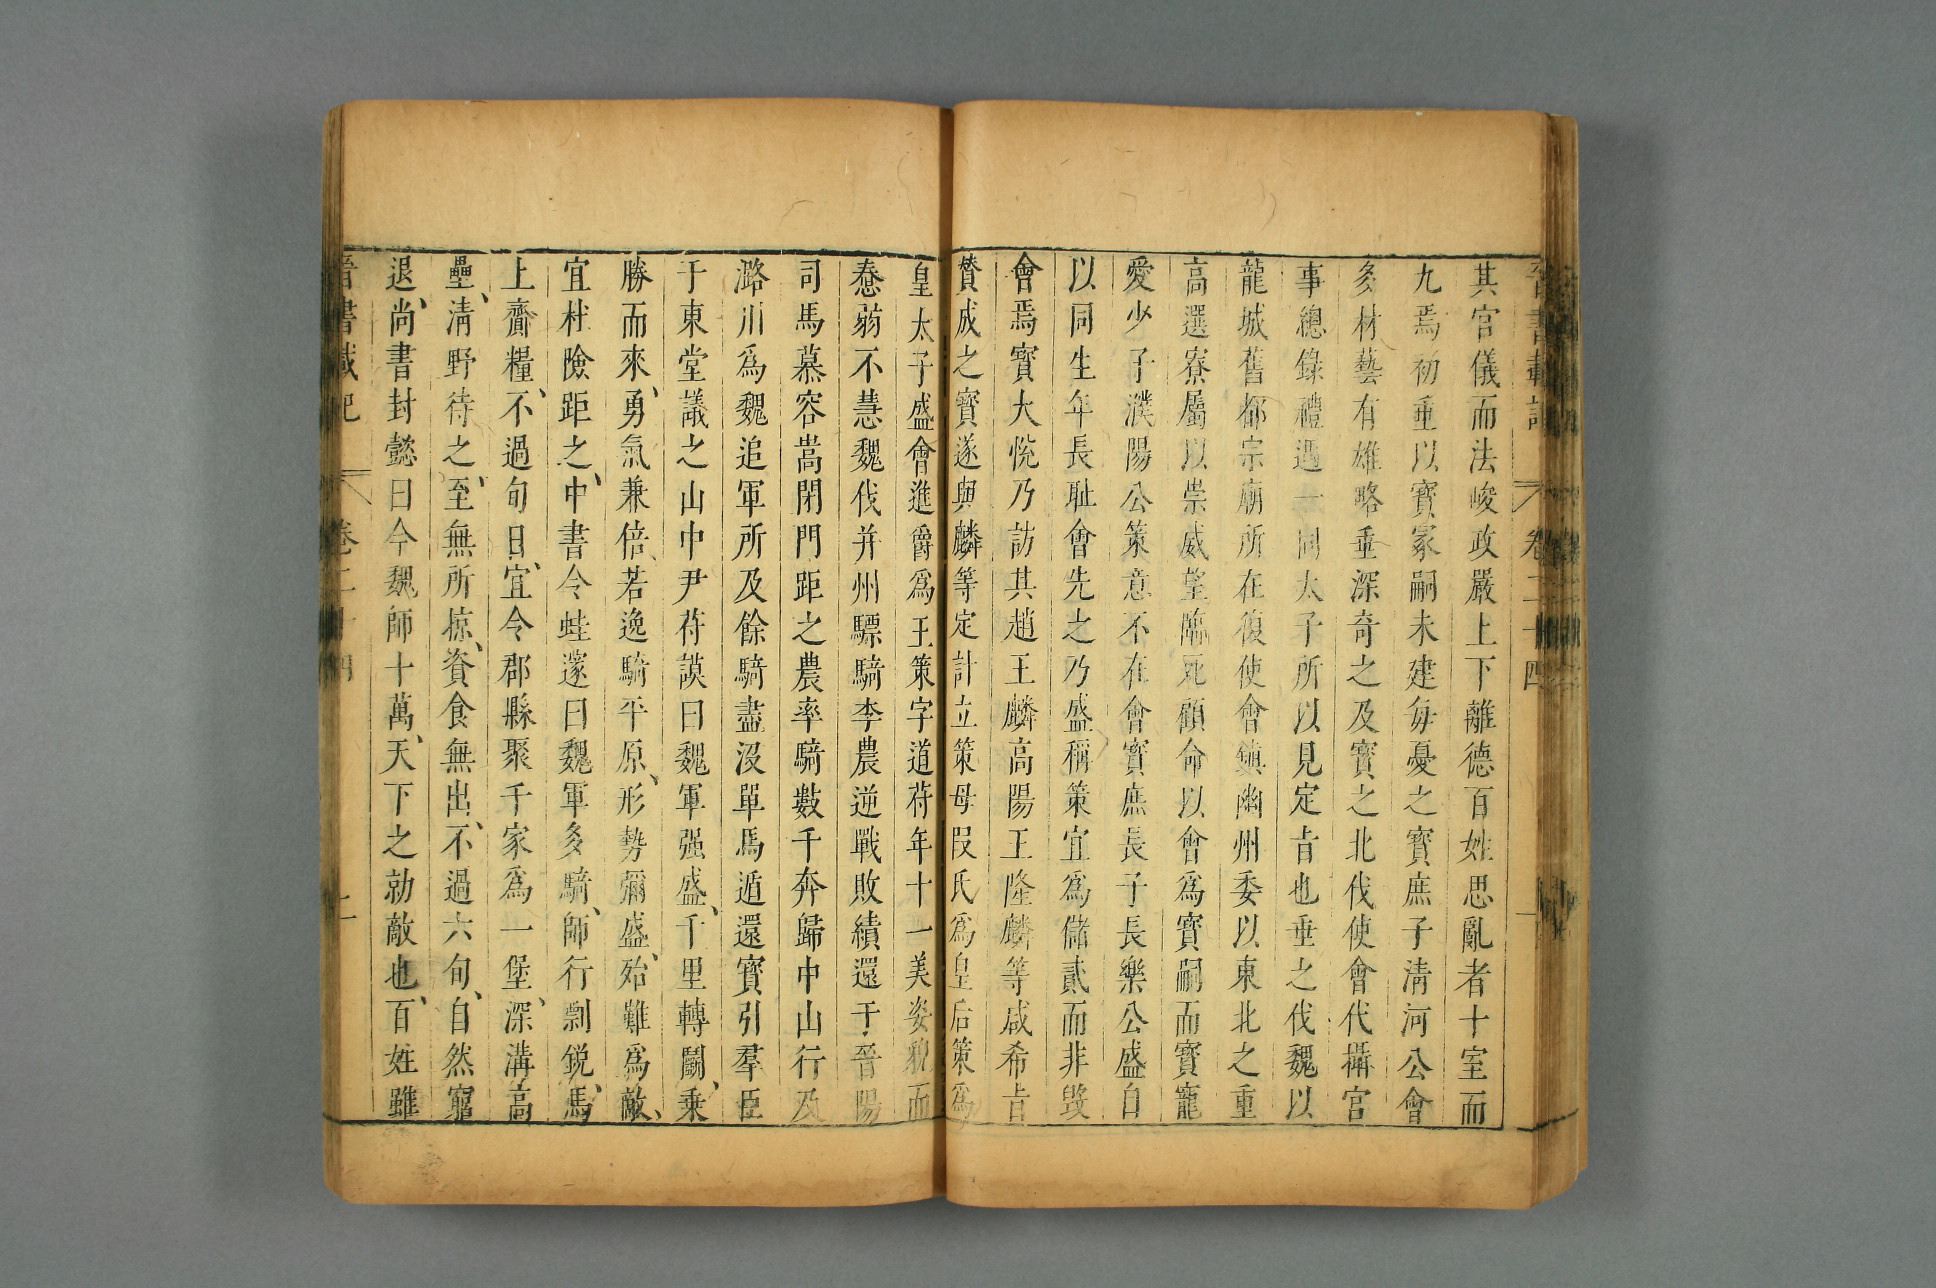 晉書載記 卷二十四 一
其官儀而法峻政嚴上下離德百姓思亂者十室而
九焉初垂以寶冢嗣未建每憂之寶庶子清河公會
多材藝有雄略垂深奇之及寶之北伐使會代攝宮
事總錄禮遇一同太子所以見定旨也垂之伐魏以
龍城舊都宗廟所在復使會鎮幽州委以東北之重
高選寮屬以崇威望臨死顧命以會爲寶嗣而寶寵
愛少子濮陽公策意不在會寶庶長子長樂公盛自
以同生年長恥會先之乃盛稱策宜爲儲貳而非毀
會焉寶大悅乃訪其趙王麟高陽王隆麟等咸希旨
贊成之寶遂與麟等定計立策母段氏爲皇后策爲
皇太子盛會進爵爲王策字道符年十一美姿貌而
惷弱不慧魏伐并州驃騎李農逆戰敗績還于晉陽
司馬慕容嵩閉門距之農率騎數千奔歸中山行及
潞川爲魏追軍所及餘騎盡沒單馬遁還寶引羣臣
于東堂議之中山尹苻謨曰魏軍强盛、千里轉鬭、乘
勝而來、勇氣兼倍、若逸騎平原、形勢彌盛、殆難爲敵、
宜杜險距之、中書令眭邃曰魏軍多騎、師行剽銳、馬
上齎糧、不過旬日、宜令郡縣聚千家爲一堡、深溝高
壘、清野待之、至無所掠、資食無出、不過六旬、自然窮
退、尚書封懿曰今魏師十萬、天下之勍敵也、百姓雖
晉書載記 卷二十四 二